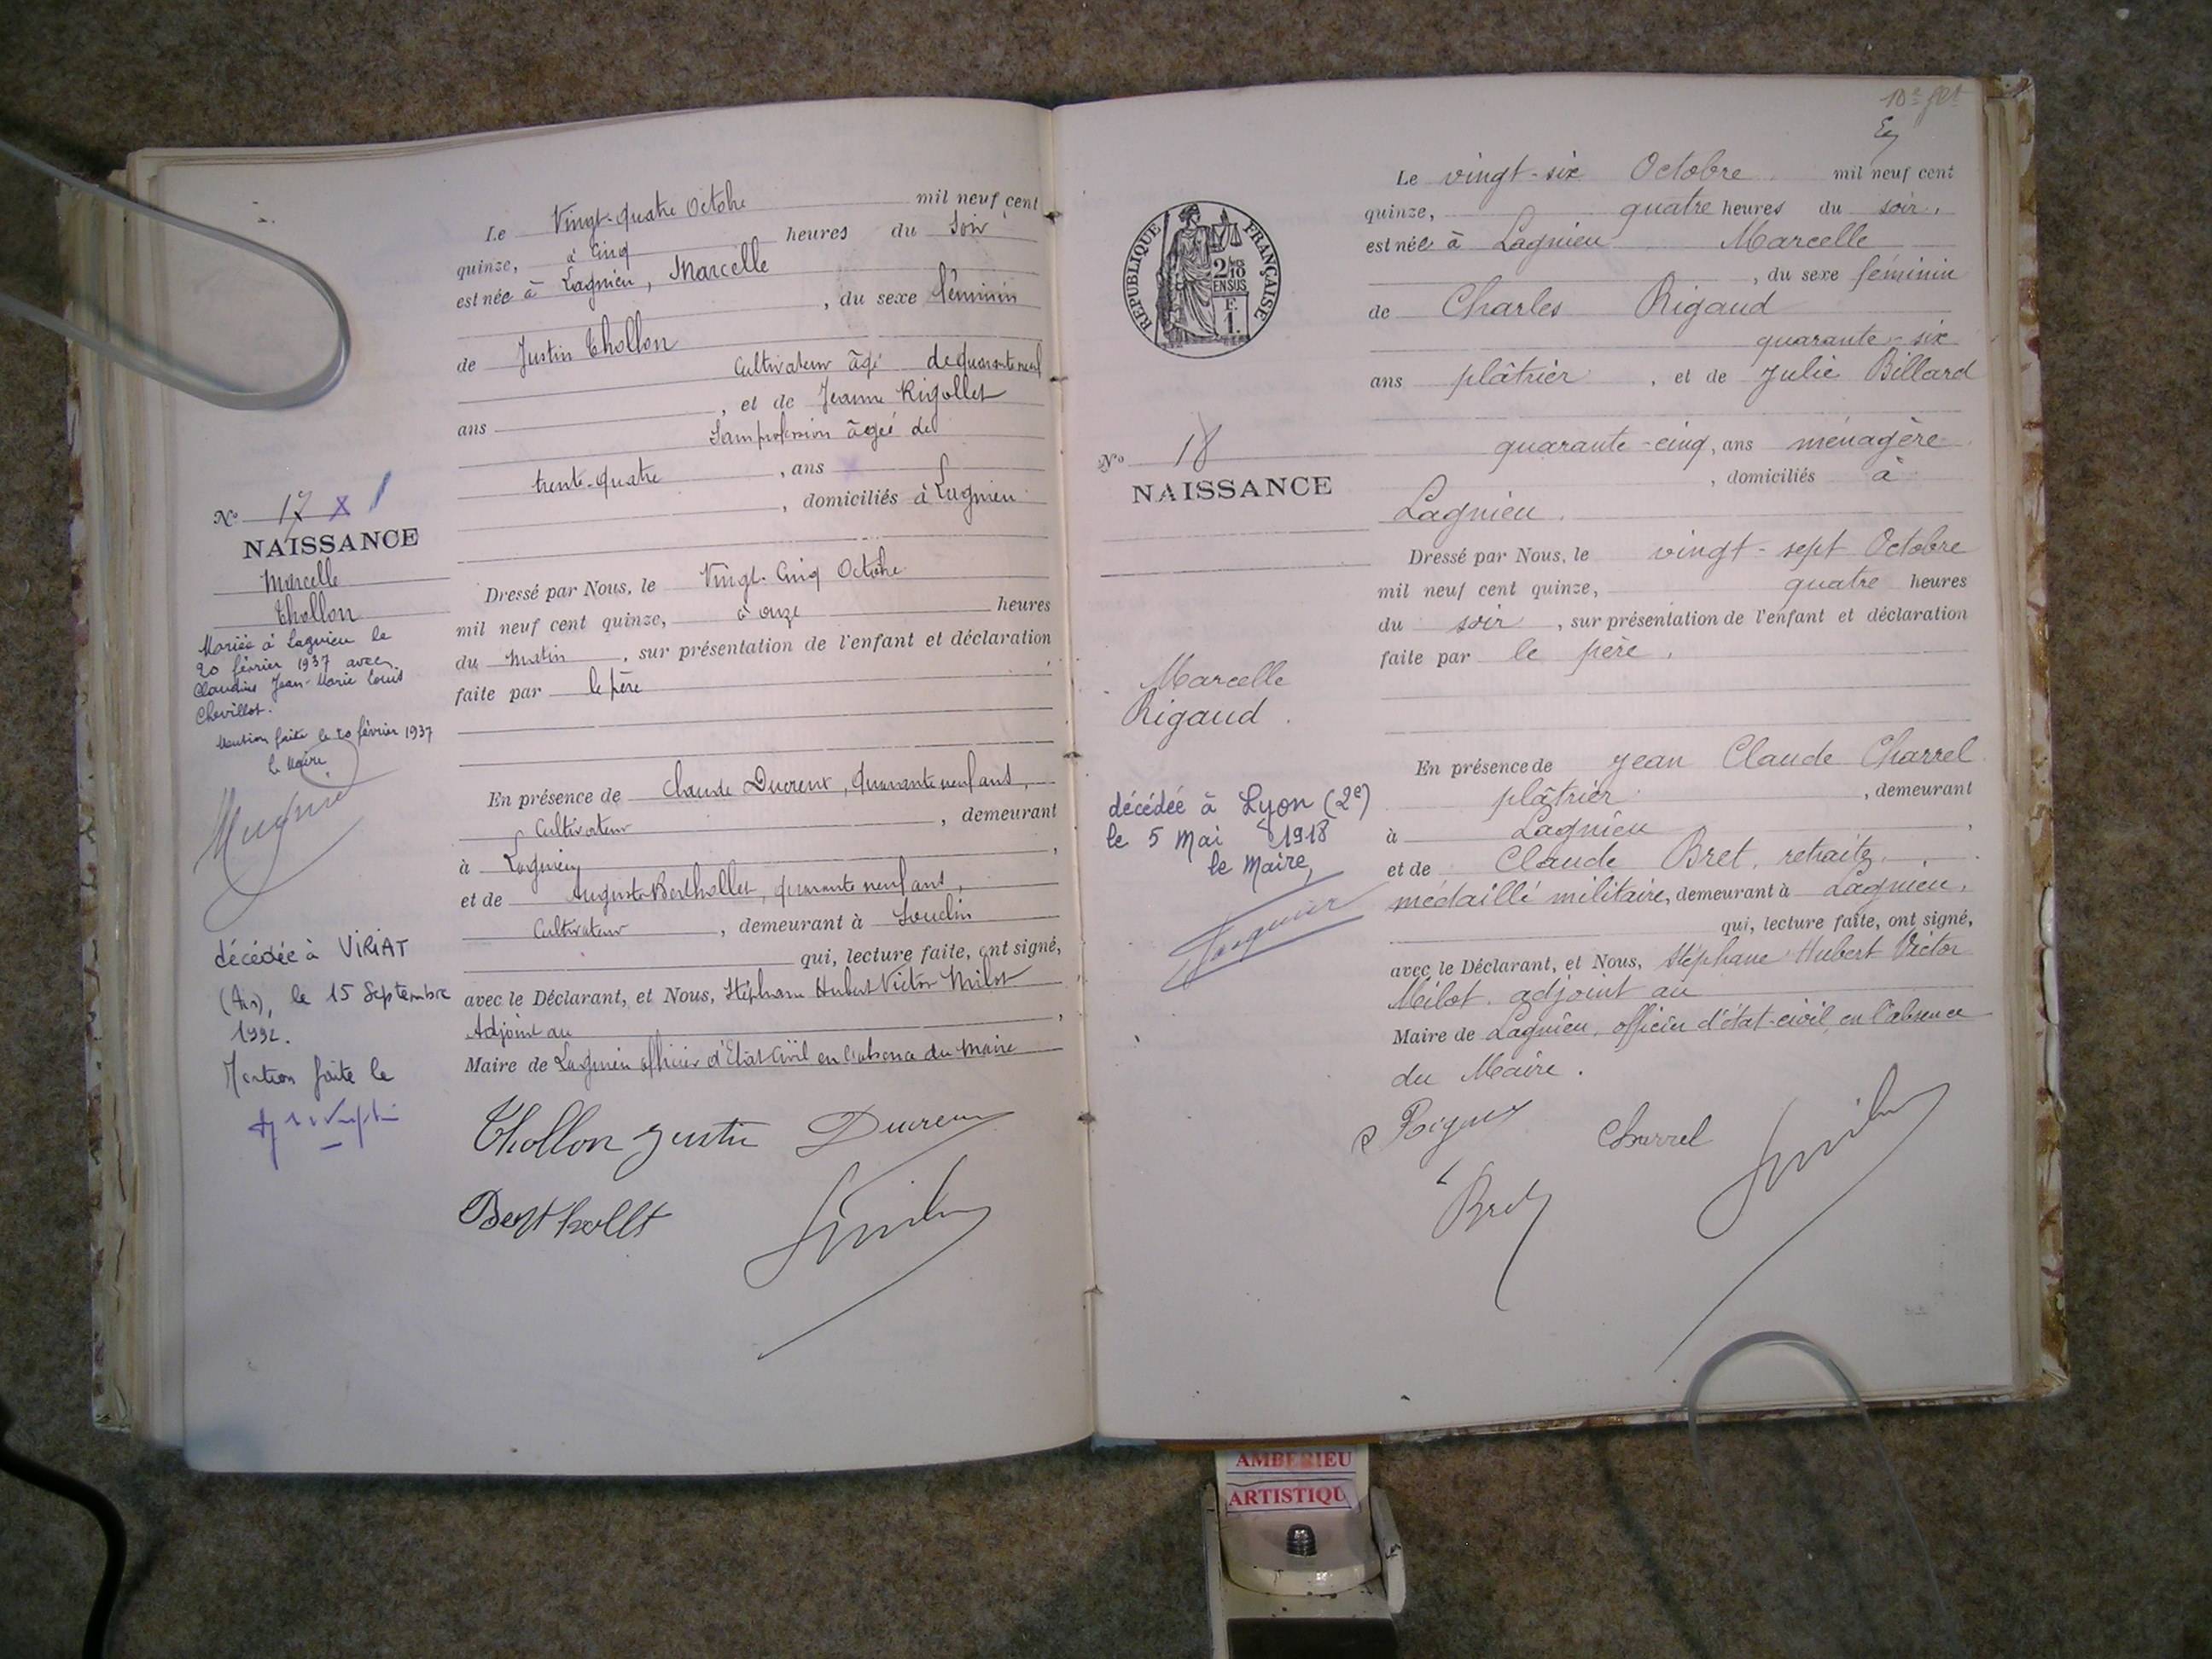 Le Vingt-quatre Octobre mil neuf cent
quinze, à Cinq heures du Soir
est née à Lagnieu, Marcelle
, du sexe féminin
de Justin Thollon
Cultivateur âgé de quarante neuf
ans , et de Jeanne Rigollet
Sans profession âgée de
trente-quatre , ans
, domiciliés à Lagnieu
Dressé par Nous, le Vingt-Cinq Octobre
mil neuf cent quinze, à onze heures
du matin , sur présentation de l'enfant et déclaration
faite par le père
En présence de Claude Ducreux, quarante neuf ans,
Cultivateur , demeurant
à Lagnieu ,
et de Auguste Berthollet, quarante neuf ans,
Cultivateur , demeurant à Soudin
qui, lecture faite, ont signé,
avec le Déclarant, et Nous, Stéphane Hubert Victor Milot
Adjoint au ,
Maire de Lagnieu officier d'Etat Civil en l'absence du Maire
Thollon Justin Ducreux
Berthollet
No 17 X
NAISSANCE
Marcelle
Thollon
Mariée à Lagnieu le
20 février 1937 avec
Claudius Jean-Marie Louis
Chevillot.
Mention faite le 20 février 1937
le Maire
décédée à VIRIAT
(Ain), le 15 Septembre
1992.
Mention faite le
10e flt
Le vingt-six Octobre mil neuf cent
quinze, quatre heures du soir,
est née à Lagnieu Marcelle
, du sexe féminin
de Charles Rigaud
quarante-six
ans plâtrier , et de Julie Billard
quarante-cinq, ans ménagère
, domiciliés à
Lagnieu.
Dressé par Nous, le vingt-sept Octobre
mil neuf cent quinze, quatre heures
du soir , sur présentation de l'enfant et déclaration
faite par le père.
En présence de Jean Claude Charrel
plâtrier , demeurant
à Lagnieu ,
et de Claude Bret, retraité,
médaillé militaire, demeurant à Lagnieu,
qui, lecture faite, ont signé,
avec le Déclarant, et Nous, Stéphane Hubert Victor
Milot, adjoint au
Maire de Lagnieu, officier d'état-civil, en l'absence
du Maire.
Charrel
Bret
RÉPUBLIQUE FRANÇAISE
2/10
EN SUS
F.
1.
No 18
NAISSANCE
Marcelle
Rigaud.
décédée à Lyon (2e)
le 5 Mai 1918
le Maire,
AMBERIEU
ARTISTIQU